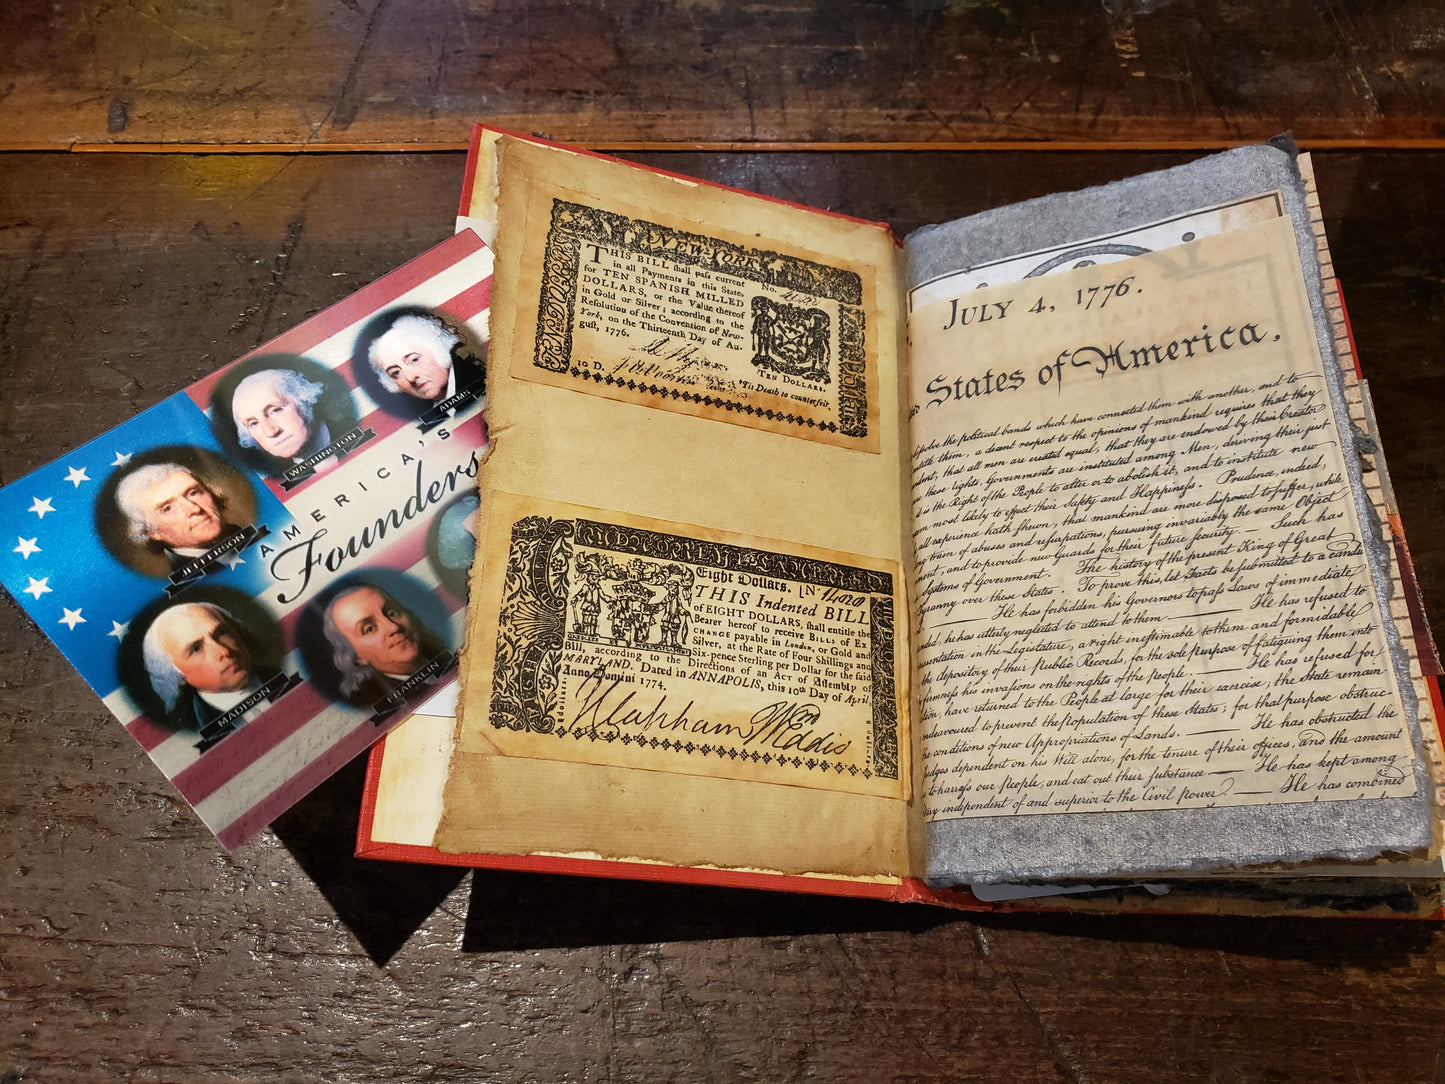 WASHINGTON
ADAMS
JEFFERSON
AMERICA'S
Founders
MADISON
FRANKLIN
NEW-YORK
THIS BILL shall pass current
in all Payments in this State,
for TEN SPANISH MILLED
DOLLARS, or the Value thereof
in Gold or Silver; according to the
Resolution of the Convention of New-
York, on the Thirteenth Day of Au-
gust, 1776.
No.
10 D.
TEN DOLLARS.
'Tis Death to counterfeit.
Eight Dollars. [No 14020
THIS Indented BILL
of EIGHT DOLLARS, shall entitle the
Bearer hereof to receive BILLS of Ex
CHANGE payable in London, or Gold and
Silver, at the Rate of Four Shillings and
Six-pence Sterling per Dollar for the said
Bill, according to the Directions of an ACT of Assembly of
MARYLAND. Dated in ANNAPOLIS, this 10th Day of April,
Anno Domini 1774.
JULY 4, 1776.
States of America,
the political bands which have connected them with another, and to
them, a decent respect to the opinions of mankind requires that they
that all men are created equal, that they are endowed by their Creator
these rights, Governments are instituted among Men, deriving their just
is the Right of the People to alter or to abolish it, and to institute new
most likely to effect their Safety and Happiness. Prudence, indeed,
all experience hath shewn, that mankind are more disposed to suffer, while
train of abuses and usurpations, pursuing invariably the same Object
and to provide new Guards for their future security.— Such has
Systems of Government. The history of the present King of Great
over these States. To prove this, let Facts be submitted to a candid
He has forbidden his Governors to pass Laws of immediate
he has utterly neglected to attend to them.— He has refused to
in the Legislature, a right inestimable to them and formidable
the depository of their Public Records, for the sole purpose of fatiguing them into
firmness his invasions on the rights of the people.— He has refused for
have returned to the People at large for their exercise; the State remain
endeavoured to prevent the population of these States; for that purpose obstruc-
conditions of new Appropriations of Lands.— He has obstructed the
dependent on his Will alone, for the tenure of their offices, and the amount
to harrass our People, and eat out their substance.— He has kept among
independent of and superior to the Civil power.— He has combined